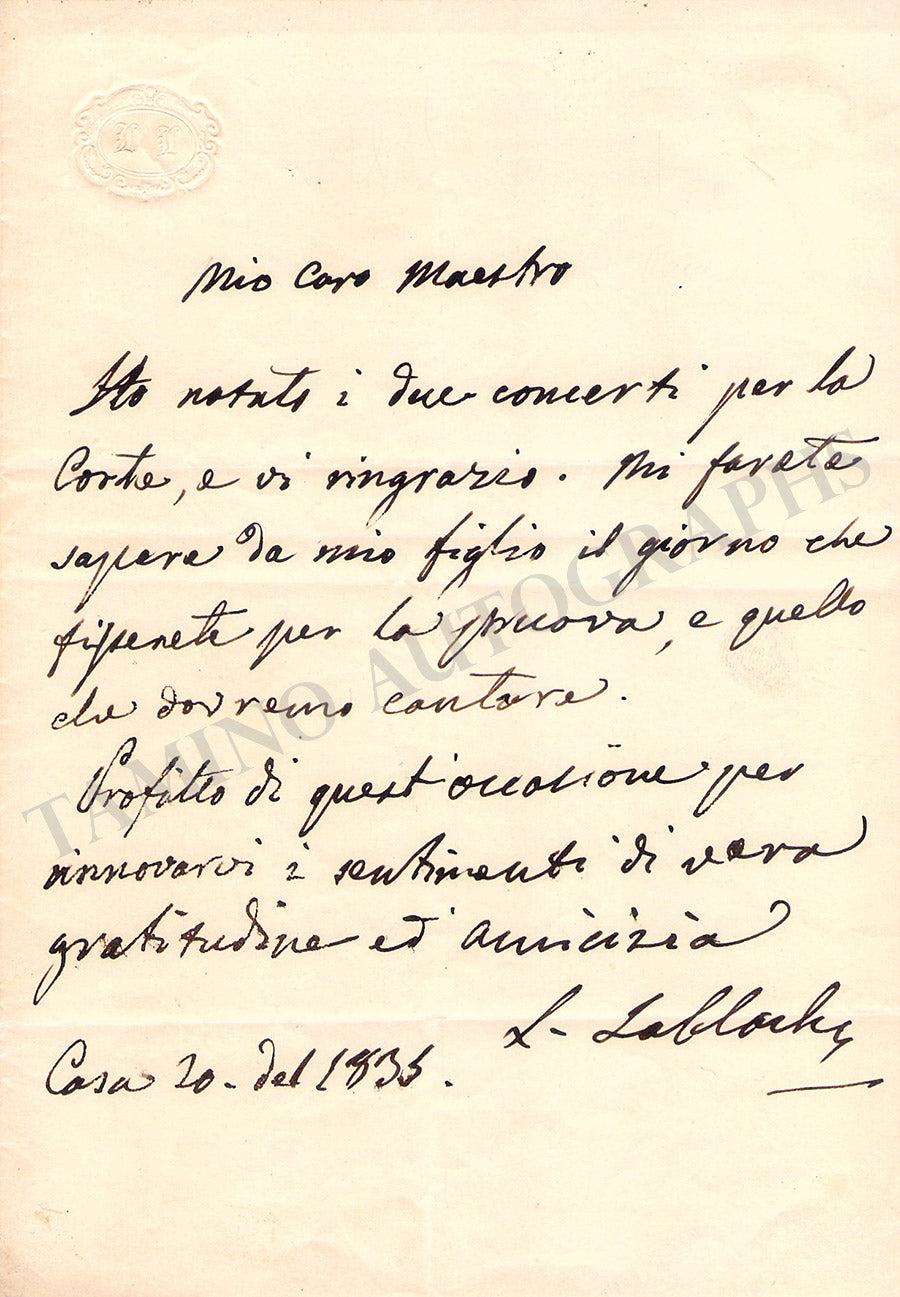 L L
Mio Caro Maestro
Ho notato i due concerti per la
Corte, e vi ringrazio. Mi farete
sapere da mio figlio il giorno che
fisserete per la pruova, e quello
che dovremo cantare.
Profitto di quest'occasione per
rinnovarvi i sentimenti di vera
gratitudine ed amicizia
L. Lablache
Casa 20. del 1835.
TAMINO AUTOGRAPHS